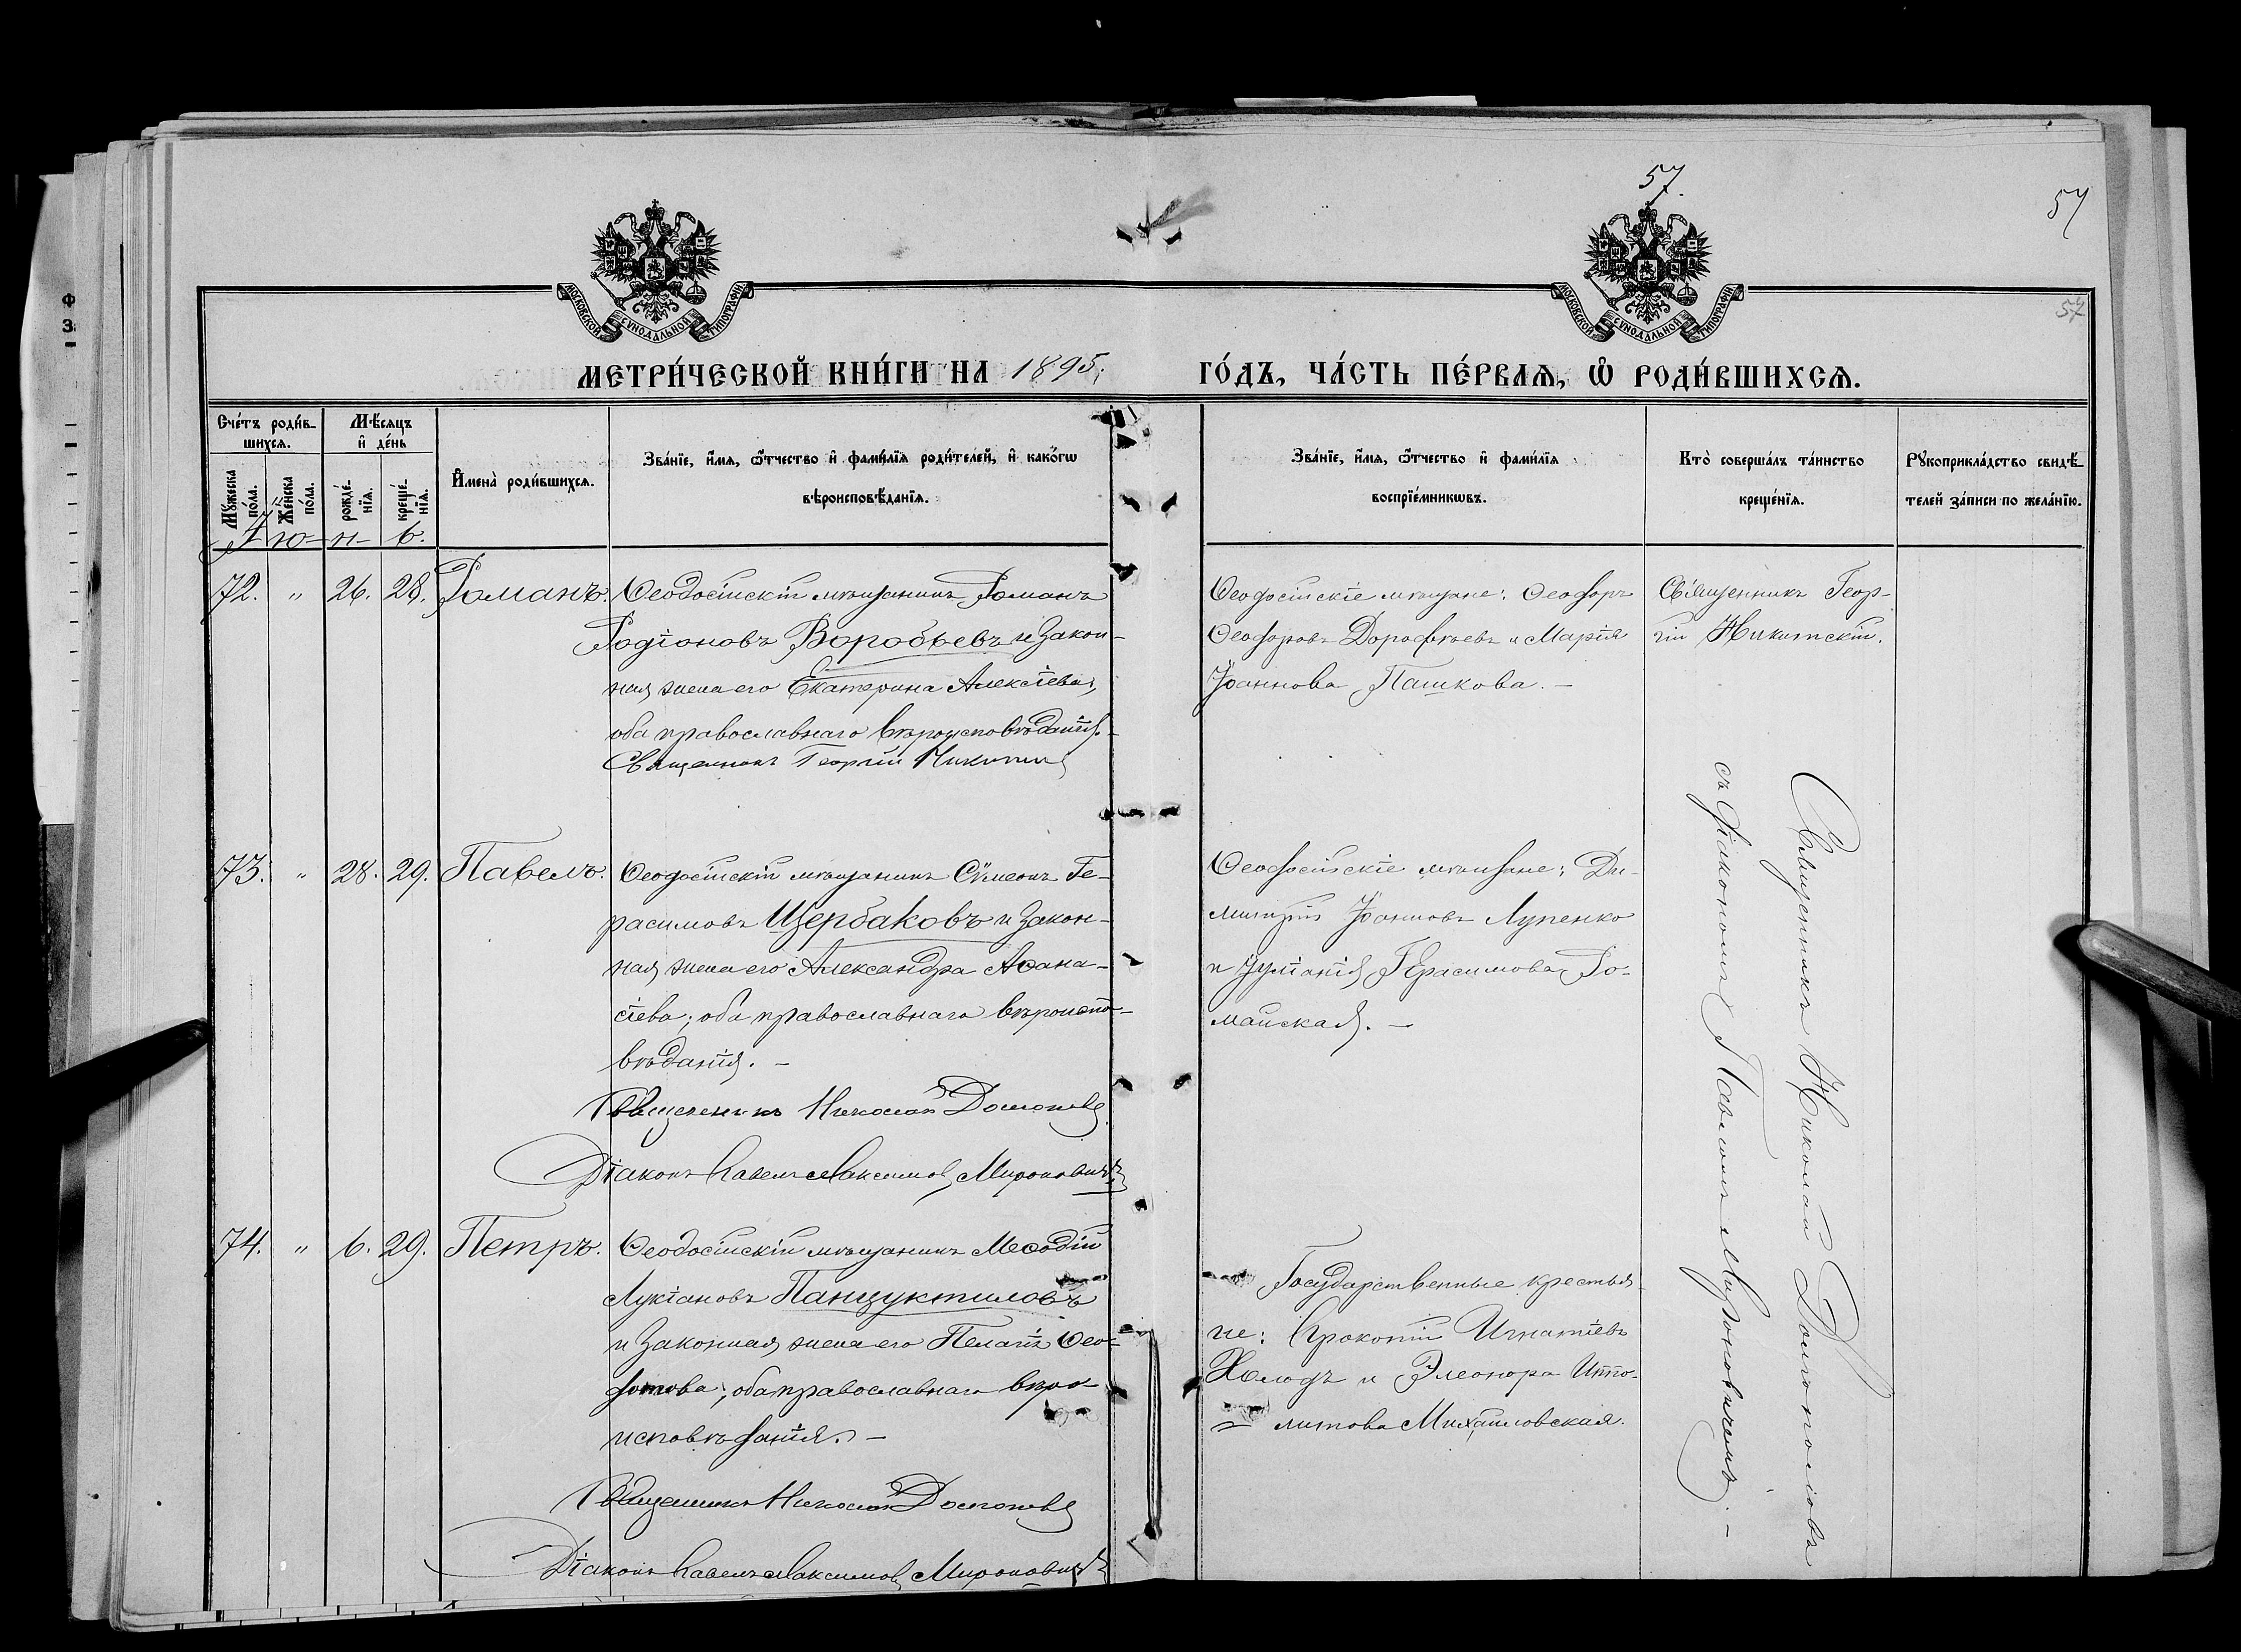 57.
57
57
МОСКОВСКОЙ СУНОДАЛЬНОЙ ТИПОГРАФІИ
МОСКОВСКОЙ СУНОДАЛЬНОЙ ТИПОГРАФІИ
МЕТРИ́ЧЕСКОЙ КНИ́ГИ НА 1895,
ГО́ДЪ, ЧА́СТЬ ПЕ́РВАѦ, Ѽ РОДИ́ВШИХСѦ.
Сче́тъ роди́в-
шихсѧ.
Мꙋжеска по́ла.
Же́нска по́ла.
Мѣ́сѧцъ
и҆ де́нь
рожде́-
нїѧ.
креще́-
нїѧ.
И҆мена̀ роди́вшихсѧ.
Зва́нїе, и҆́мѧ, ѻ҆́тчество и҆ фами́лїѧ роди́телей, и҆ како́гѡ
вѣроисповѣ́данїѧ.
Зва́нїе, и҆́мѧ, ѻ҆́тчество и҆ фами́лїѧ
воспрїе́мникѡвъ.
Кто̀ соверша́лъ та́инство
креще́нїѧ.
Рꙋкоприкла́дство свидѣ́-
телей за́писи по жела́нїю.
І- ю- н- ь.
72. " 26. 28. Романъ.
Ѳеодосійскій мѣщанинъ Романъ
Родіоновъ Воробьевъ и закон-
ная жена его Екатерина Алексіева,
оба православнаго вѣроисповѣданія.-
Священникъ Георгій Никитскій
Ѳеодосійскіе мѣщане: Ѳеодоръ
Ѳеодоровъ Дорофѣевъ и Марія
Іоаннова Пашкова. -
Священникъ Геор-
гій Никитскій.
73. " 28. 29. Павелъ.
Ѳеодосійскій мѣщанинъ Сѵмеонъ Ге-
расимовъ Щербаковъ и закон-
ная жена его Александра Аѳана-
сіева; оба православнаго вѣроиспо-
вѣданія. -
Священникъ Николай Долгополовъ
Діаконъ Павелъ Максимовъ Мироновичъ
Ѳеодосійскіе мѣщане: Ди-
митрій Іоанновъ Лупенко
и Іуліанія Герасимова Ро-
майская. -
Священникъ Николай Долгополовъ
съ діакономъ Павломъ Мироновичемъ. -
74. " 6. 29. Петръ.
Ѳеодосійскій мѣщанинъ Меѳодій
Лукіановъ Панцуктиловъ
и законная жена его Пелагія Ѳео-
дотова; оба православнаго вѣро-
исповѣданія. -
Священникъ Николай Долгополовъ
Діаконъ Павелъ Максимовъ Мироновичъ
Государственные крестья-
не: Прокопій Игнатіевъ
Холодъ и Элеонора Иппо-
литова Михайловская.